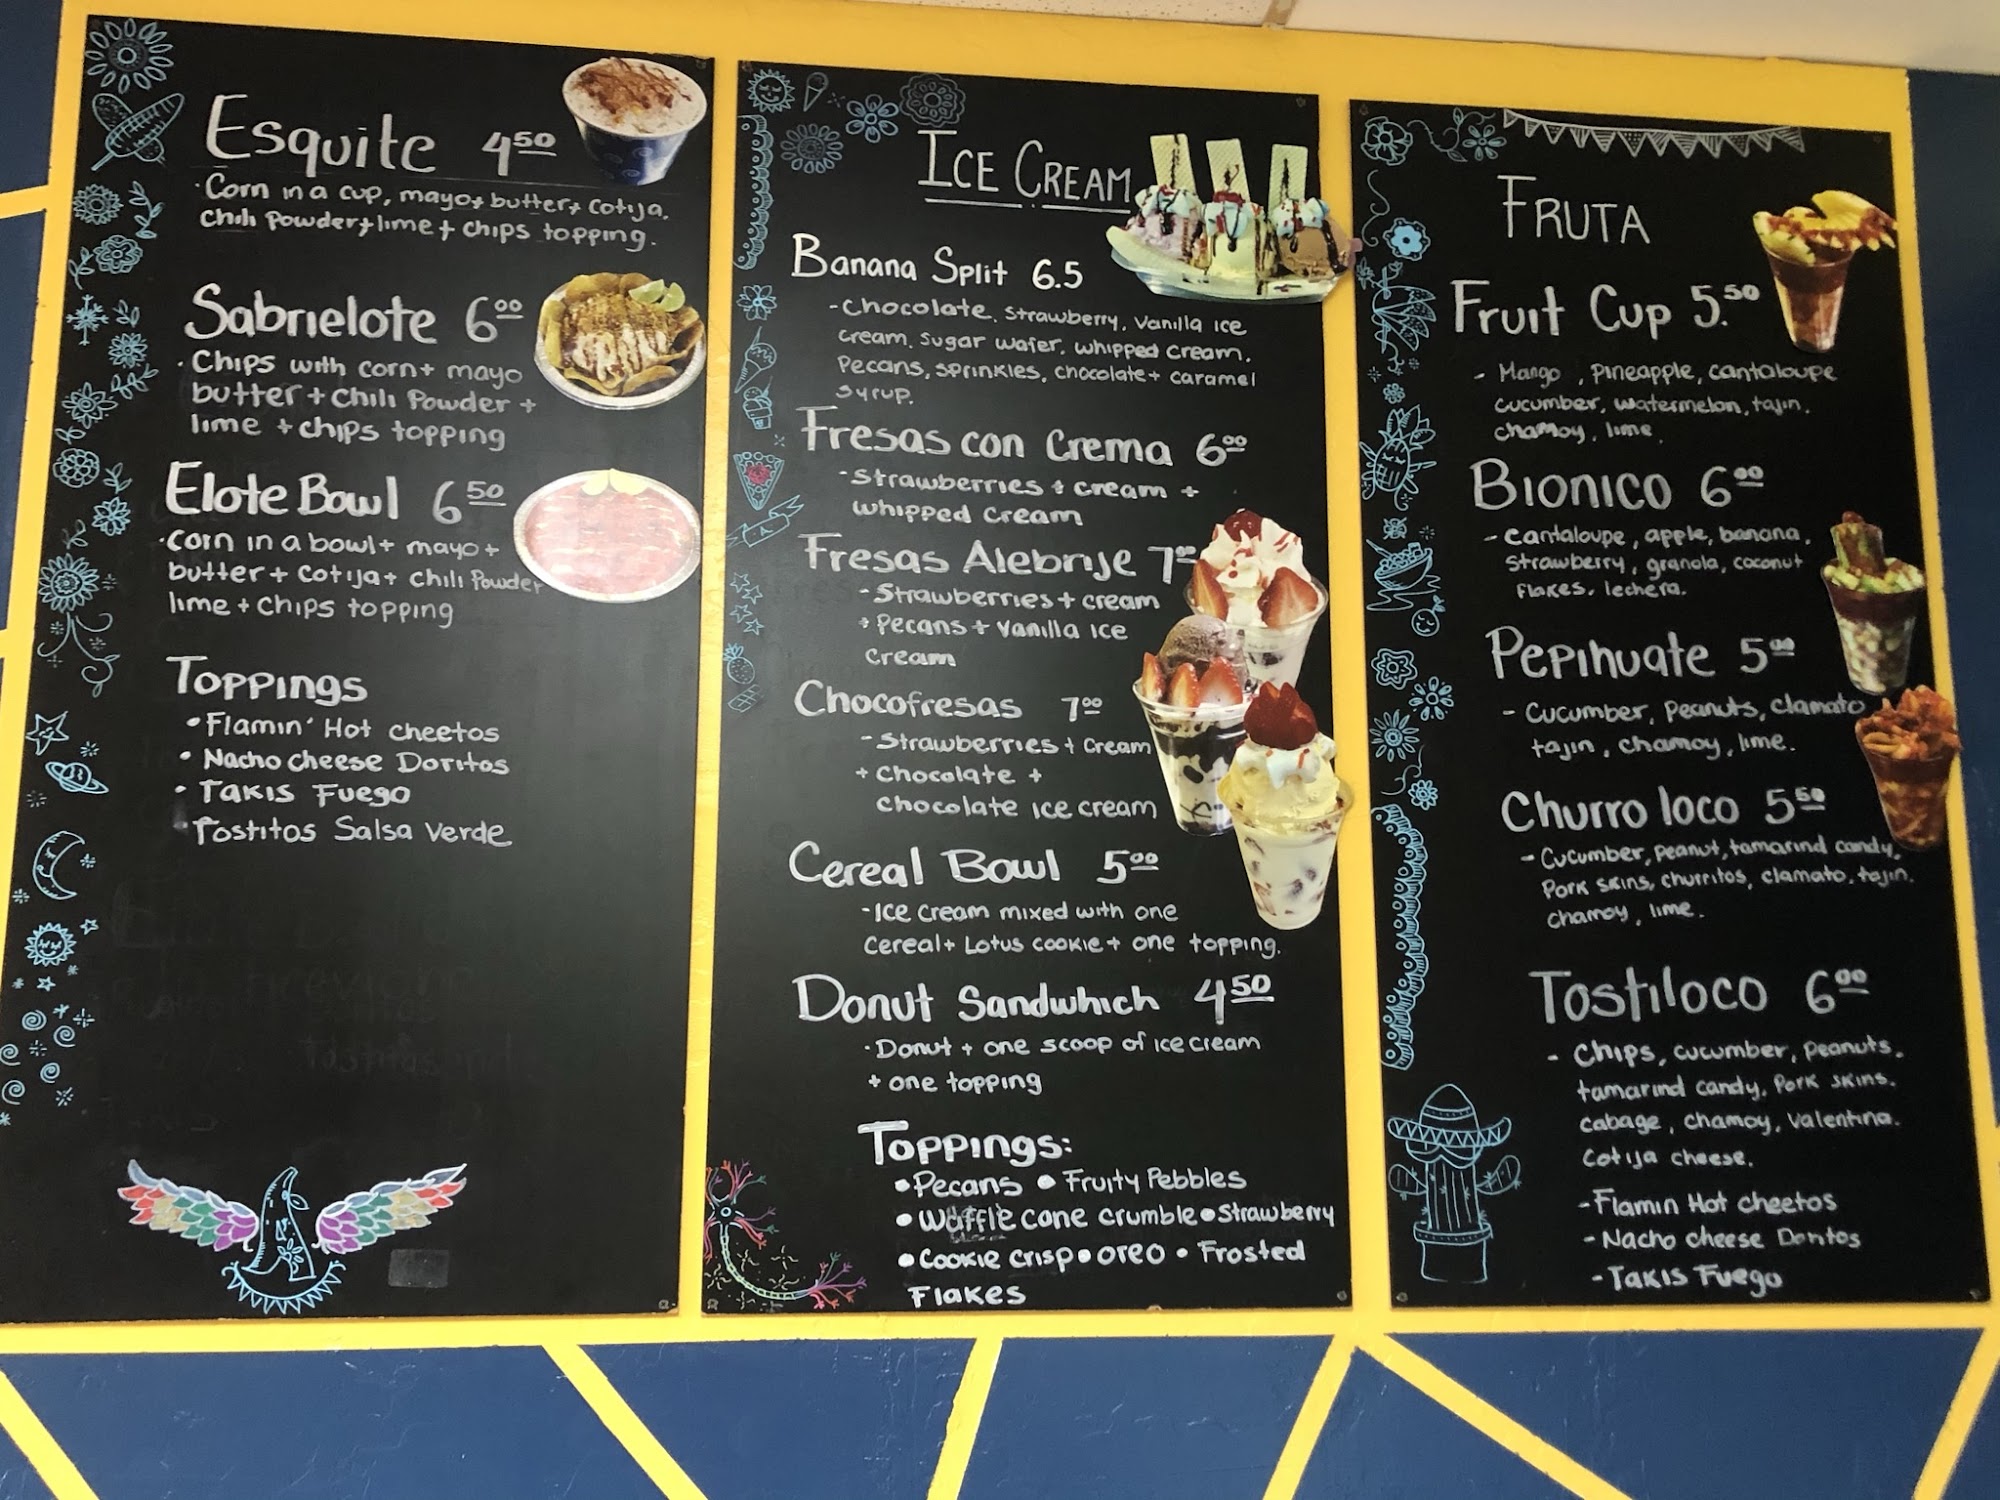 Esquite 4.50
·Corn in a cup, mayo+ butter+ cotija,
Chili Powder+lime + chips topping.
Sabrielote 6.00
·Chips with corn+ mayo
butter+chili Powder+
lime +chips topping
Elote Bowl 6.50
·corn in a bowl+ mayo+
butter+ cotija+ chili Powder
lime + chips topping
Toppings
• Flamin' Hot cheetos
• Nacho cheese Doritos
• TAKIS Fuego
• Tostitos Salsa Verde
ICE CREAM
Banana Split 6.5
-Chocolate, strawberry, vanilla ice
cream, sugar wafer, whipped cream,
Pecans, sprinkles, chocolate+ caramel
syrup.
Fresas con Crema 6.00
-Strawberries + cream +
whipped cream
Fresas Alebrije 7.00
-Strawberries + cream
+ Pecans + vanilla ice
cream
Chocofresas 7.00
-Strawberries + Cream
+ Chocolate +
chocolate ice cream
Cereal Bowl 5.00
-Ice cream mixed with one
cereal+ Lotus cookie + one topping.
Donut Sandwhich 4.50
·Donut + one scoop of ice cream
+ one topping
Toppings:
• Pecans • Fruity Pebbles
• Waffle cone crumble • Strawberry
• Cookie crisp • oreo • Frosted
Flakes
FRUTA
Fruit Cup 5.50
- Mango, Pineapple, cantaloupe
cucumber, watermelon, tajin,
chamoy, lime.
Bionico 6.00
- cantaloupe, apple, banana,
strawberry, granola, coconut
flakes, lechera.
Pepihuate 5.00
- Cucumber, Peanuts, clamato
tajin, chamoy, lime.
Churro loco 5.50
- Cucumber, peanut, tamarind candy,
Pork skins, churritos, clamato, tajin,
chamoy, lime.
Tostiloco 6.00
- Chips, cucumber, peanuts,
tamarind candy, pork skins,
cabage, chamoy, valentina.
cotija cheese.
-Flamin Hot cheetos
- Nacho cheese Doritos
-TAKIS Fuego